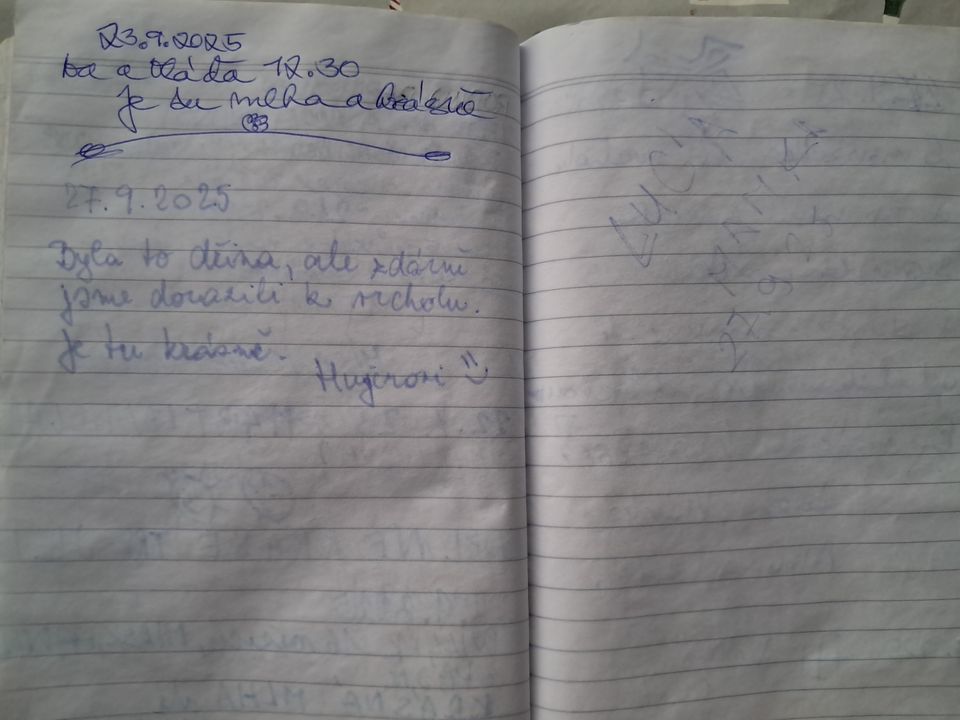 23.9.2025
a Vláďa 12.30
Je tu mlha a krásně
27.9.2025
Byla to dřina, ale zdárně
jsme dorazili k vrcholu.
Je tu krásně.
Hujerovi
LUCIA
27.9.25